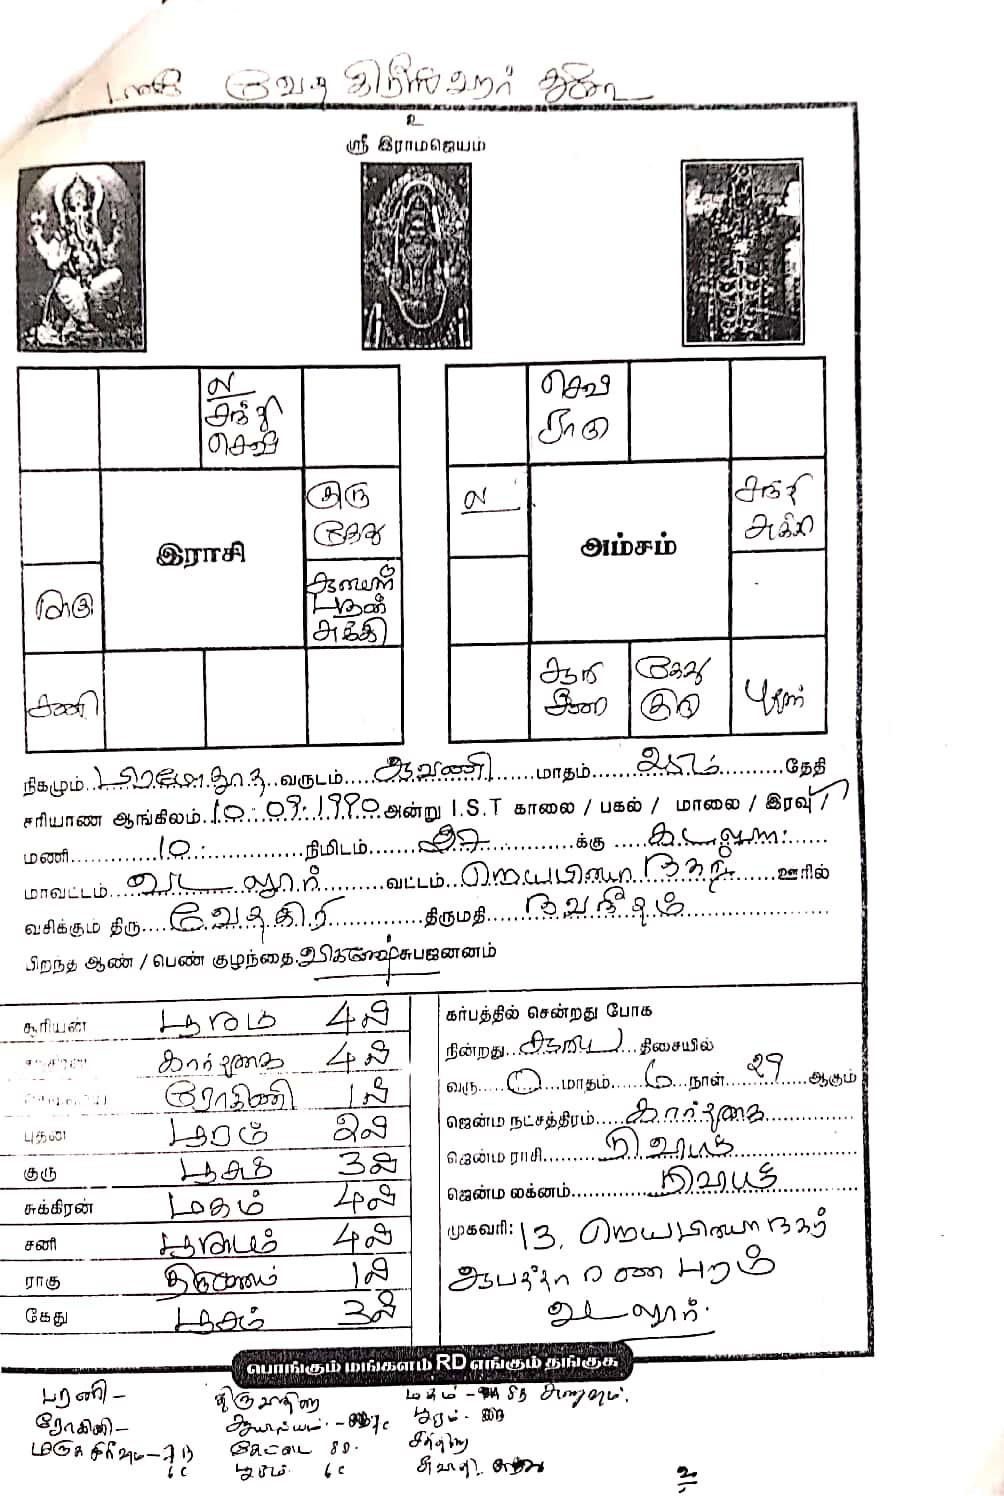 வேதகிரீஸ்வரர் துணை
உ
ஸ்ரீ இராமஜெயம்
ல
சந்தி
செவ்
குரு
கேது
இராசி
சூரியன்
புதன்
சுக்கி
ராகு
சனி
செவ்
ராகு
ல
சந்தி
சுக்கி
அம்சம்
சூரி
சனி
கேது
குரு
புதன்
நிகழும் பிரமோதூத வருடம் ஆவணி மாதம் 25ம் தேதி
சரியாண ஆங்கிலம் 10.09.1990 அன்று I.S.T காலை / பகல் / மாலை / இரவு /
மணி 10 நிமிடம் க்கு கடலூர்
மாவட்டம் வடலூர் வட்டம் ஊரில்
வசிக்கும் திரு வேதகிரி திருமதி நவநீதம்
பிறந்த ஆண் / பெண் குழந்தை சுபஜனனம்
சூரியன் பூரம் 4ல்
சந்திரன் கார்த்திகை 4ல்
ரோகிணி 1ல்
புதன் பூரம் 2ல்
குரு பூசம் 3ல்
சுக்கிரன் மகம் 4ல்
சனி பூராடம் 4ல்
ராகு திருவோணம் 1ல்
கேது பூசம் 3ல்
கர்பத்தில் சென்றது போக
நின்றது சூரிய திசையில்
வரு 0 மாதம் 6 நாள் 29 ஆகும்
ஜென்ம நட்சத்திரம் கார்த்திகை
ஜென்ம ராசி ரிஷபம்
ஜென்ம லக்னம் ரிஷபம்
முகவரி: 13, நகர்
ஆபத்தாரணபுரம்
வடலூர்.
பொங்கும் மங்களம் RD எங்கும் தங்குக
பரணி –
ரோகிணி –
திருவாதிரை
ஆயில்யம்
கேட்டை
பூரம்
மகம்
பூரம்
சித்திரை
சுவாதி
உ